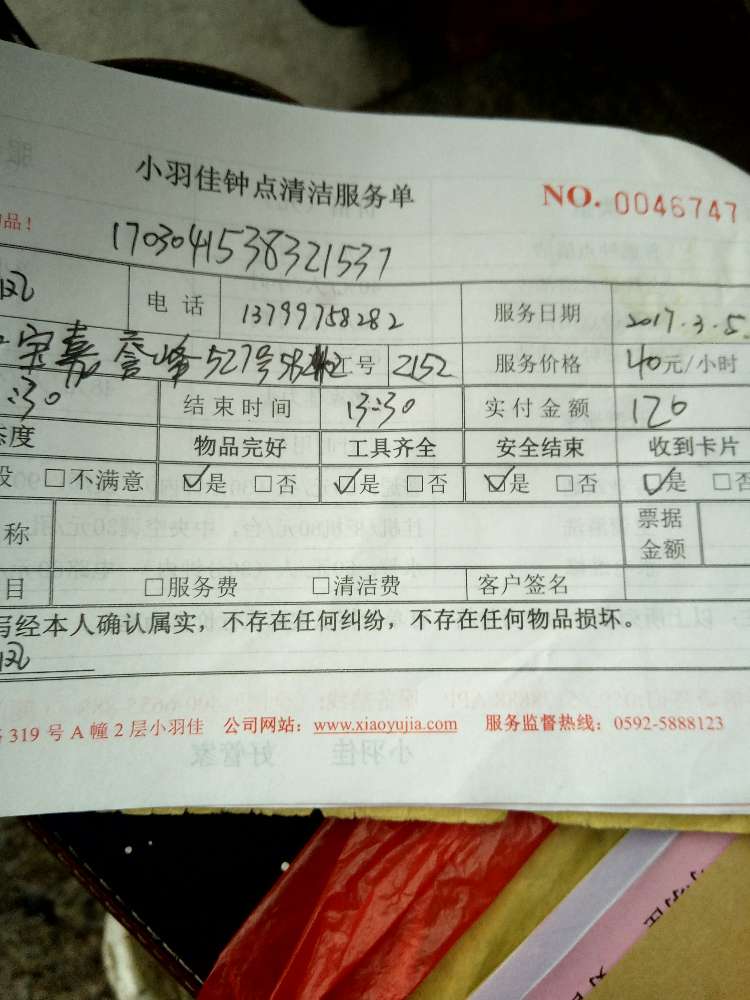 小羽佳钟点清洁服务单
NO. 0046747
品！
1703041538321537
电话 13799758282 服务日期 2017.3.5.
宝嘉誉峰527号 工号 2152 服务价格 40元/小时
:30 结束时间 13:30 实付金额 120
态度 物品完好 工具齐全 安全结束 收到卡片
□不满意 ☑是 □否 ☑是 □否 ☑是 □否 ☑是 □否
称 票据金额
目 □服务费 □清洁费 客户签名
写经本人确认属实，不存在任何纠纷，不存在任何物品损坏。
319 号 A 幢 2 层小羽佳 公司网站：www.xiaoyujia.com 服务监督热线：0592-5888123